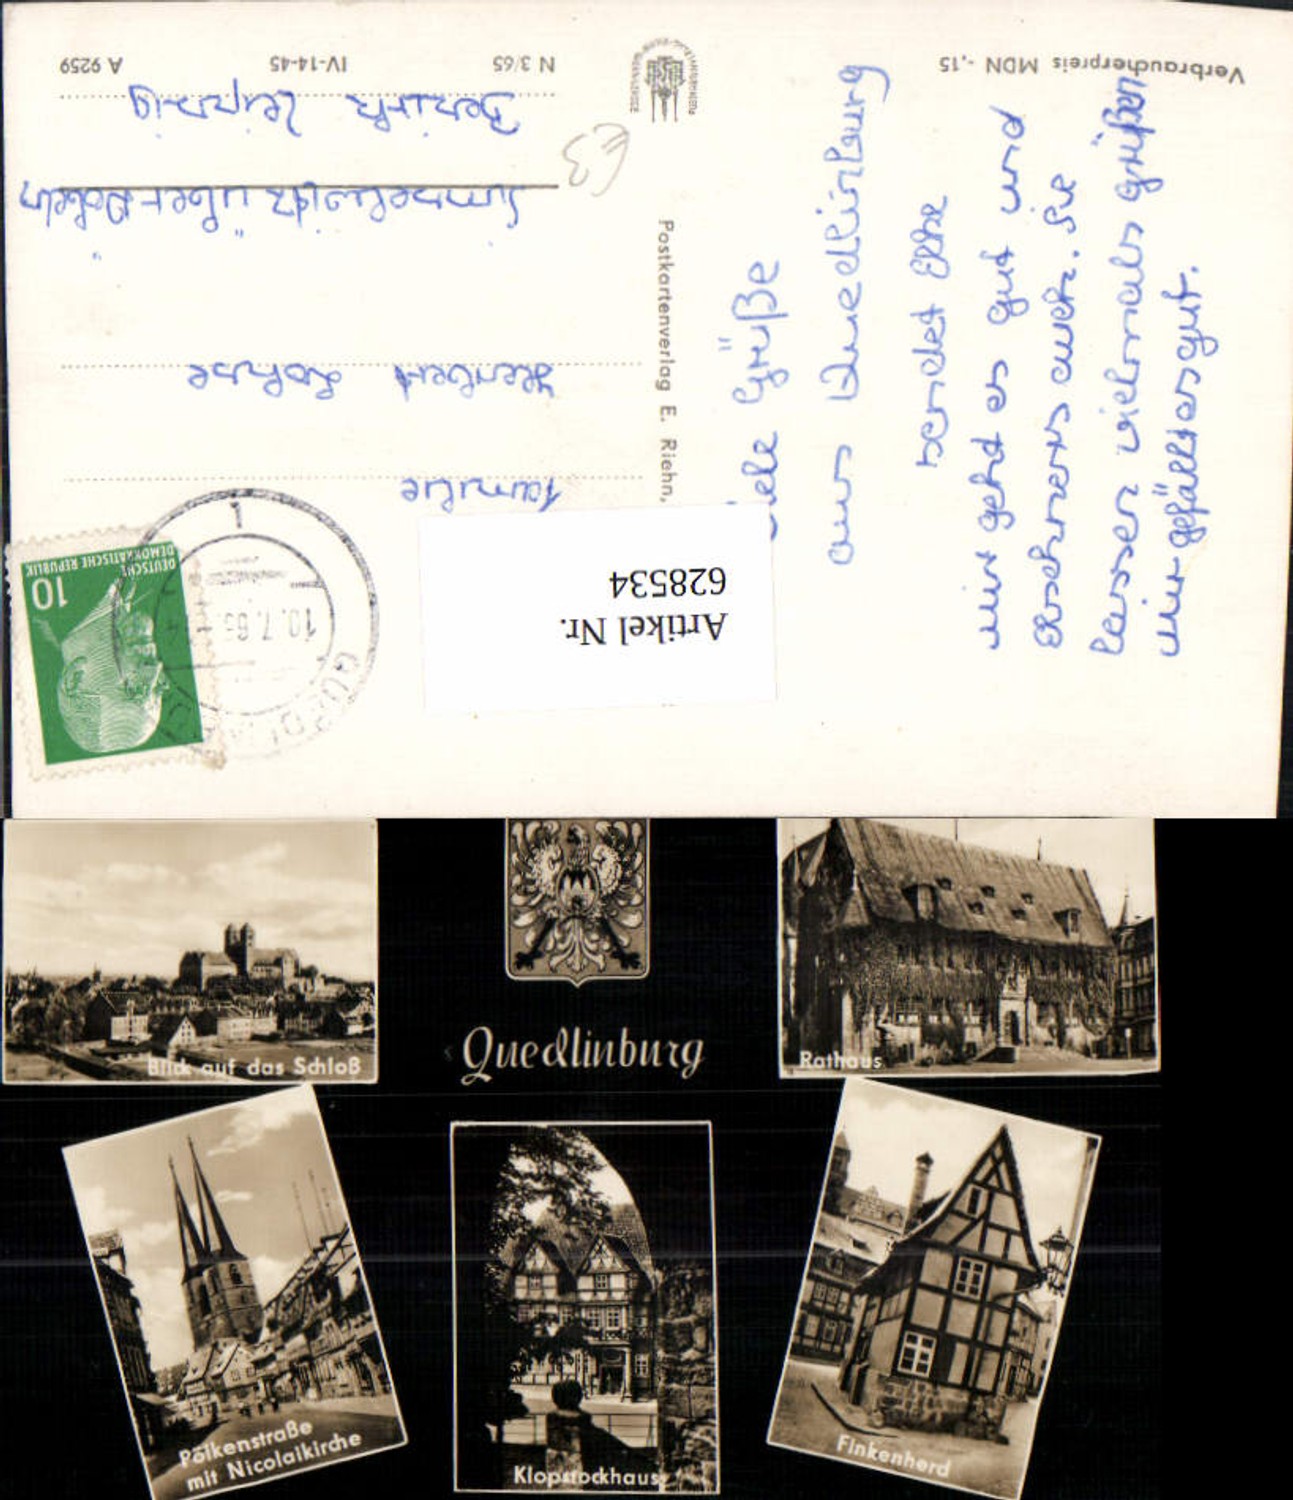 Verbraucherpreis MDN -,15
Viele Grüße
aus Quedlinburg
sendet Elke
mir geht es gut und
lassen vielmals
mir gefällt es gut.
N 3/65 IV-14-45 A 9259
Postkartenverlag E. Riehn,
Bezirk Leipzig
über Döbeln
Herbert
Familie
DEUTSCHE
DEMOKRATISCHE REPUBLIK
10
1
10.7.65
Artikel Nr.
628534
Blick auf das Schloß
Quedlinburg
Rathaus
Pölkenstraße
mit Nicolaikirche
Klopstockhaus
Finkenherd